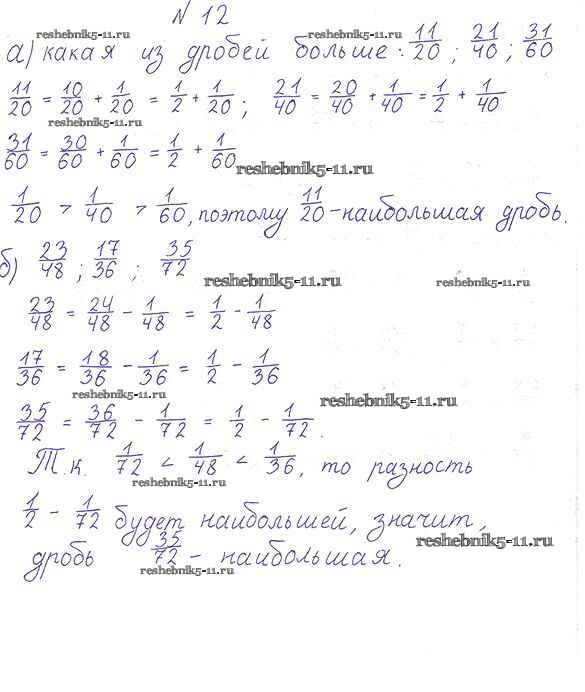 № 12
reshebnik5-11.ru
а) какая из дробей больше: 11/20; 21/40; 31/60
11/20 = 10/20 + 1/20 = 1/2 + 1/20; 21/40 = 20/40 + 1/40 = 1/2 + 1/40
reshebnik5-11.ru
31/60 = 30/60 + 1/60 = 1/2 + 1/60
reshebnik5-11.ru
1/20 > 1/40 > 1/60, поэтому 11/20 - наибольшая дробь.
б) 23/48; 17/36; 35/72
reshebnik5-11.ru reshebnik5-11.ru
23/48 = 24/48 - 1/48 = 1/2 - 1/48
17/36 = 18/36 - 1/36 = 1/2 - 1/36
reshebnik5-11.ru reshebnik5-11.ru
35/72 = 36/72 - 1/72 = 1/2 - 1/72.
Т.к. 1/72 < 1/48 < 1/36, то разность
reshebnik5-11.ru
1/2 - 1/72 будет наибольшей, значит,
reshebnik5-11.ru
дробь 35/72 - наибольшая.
reshebnik5-11.ru